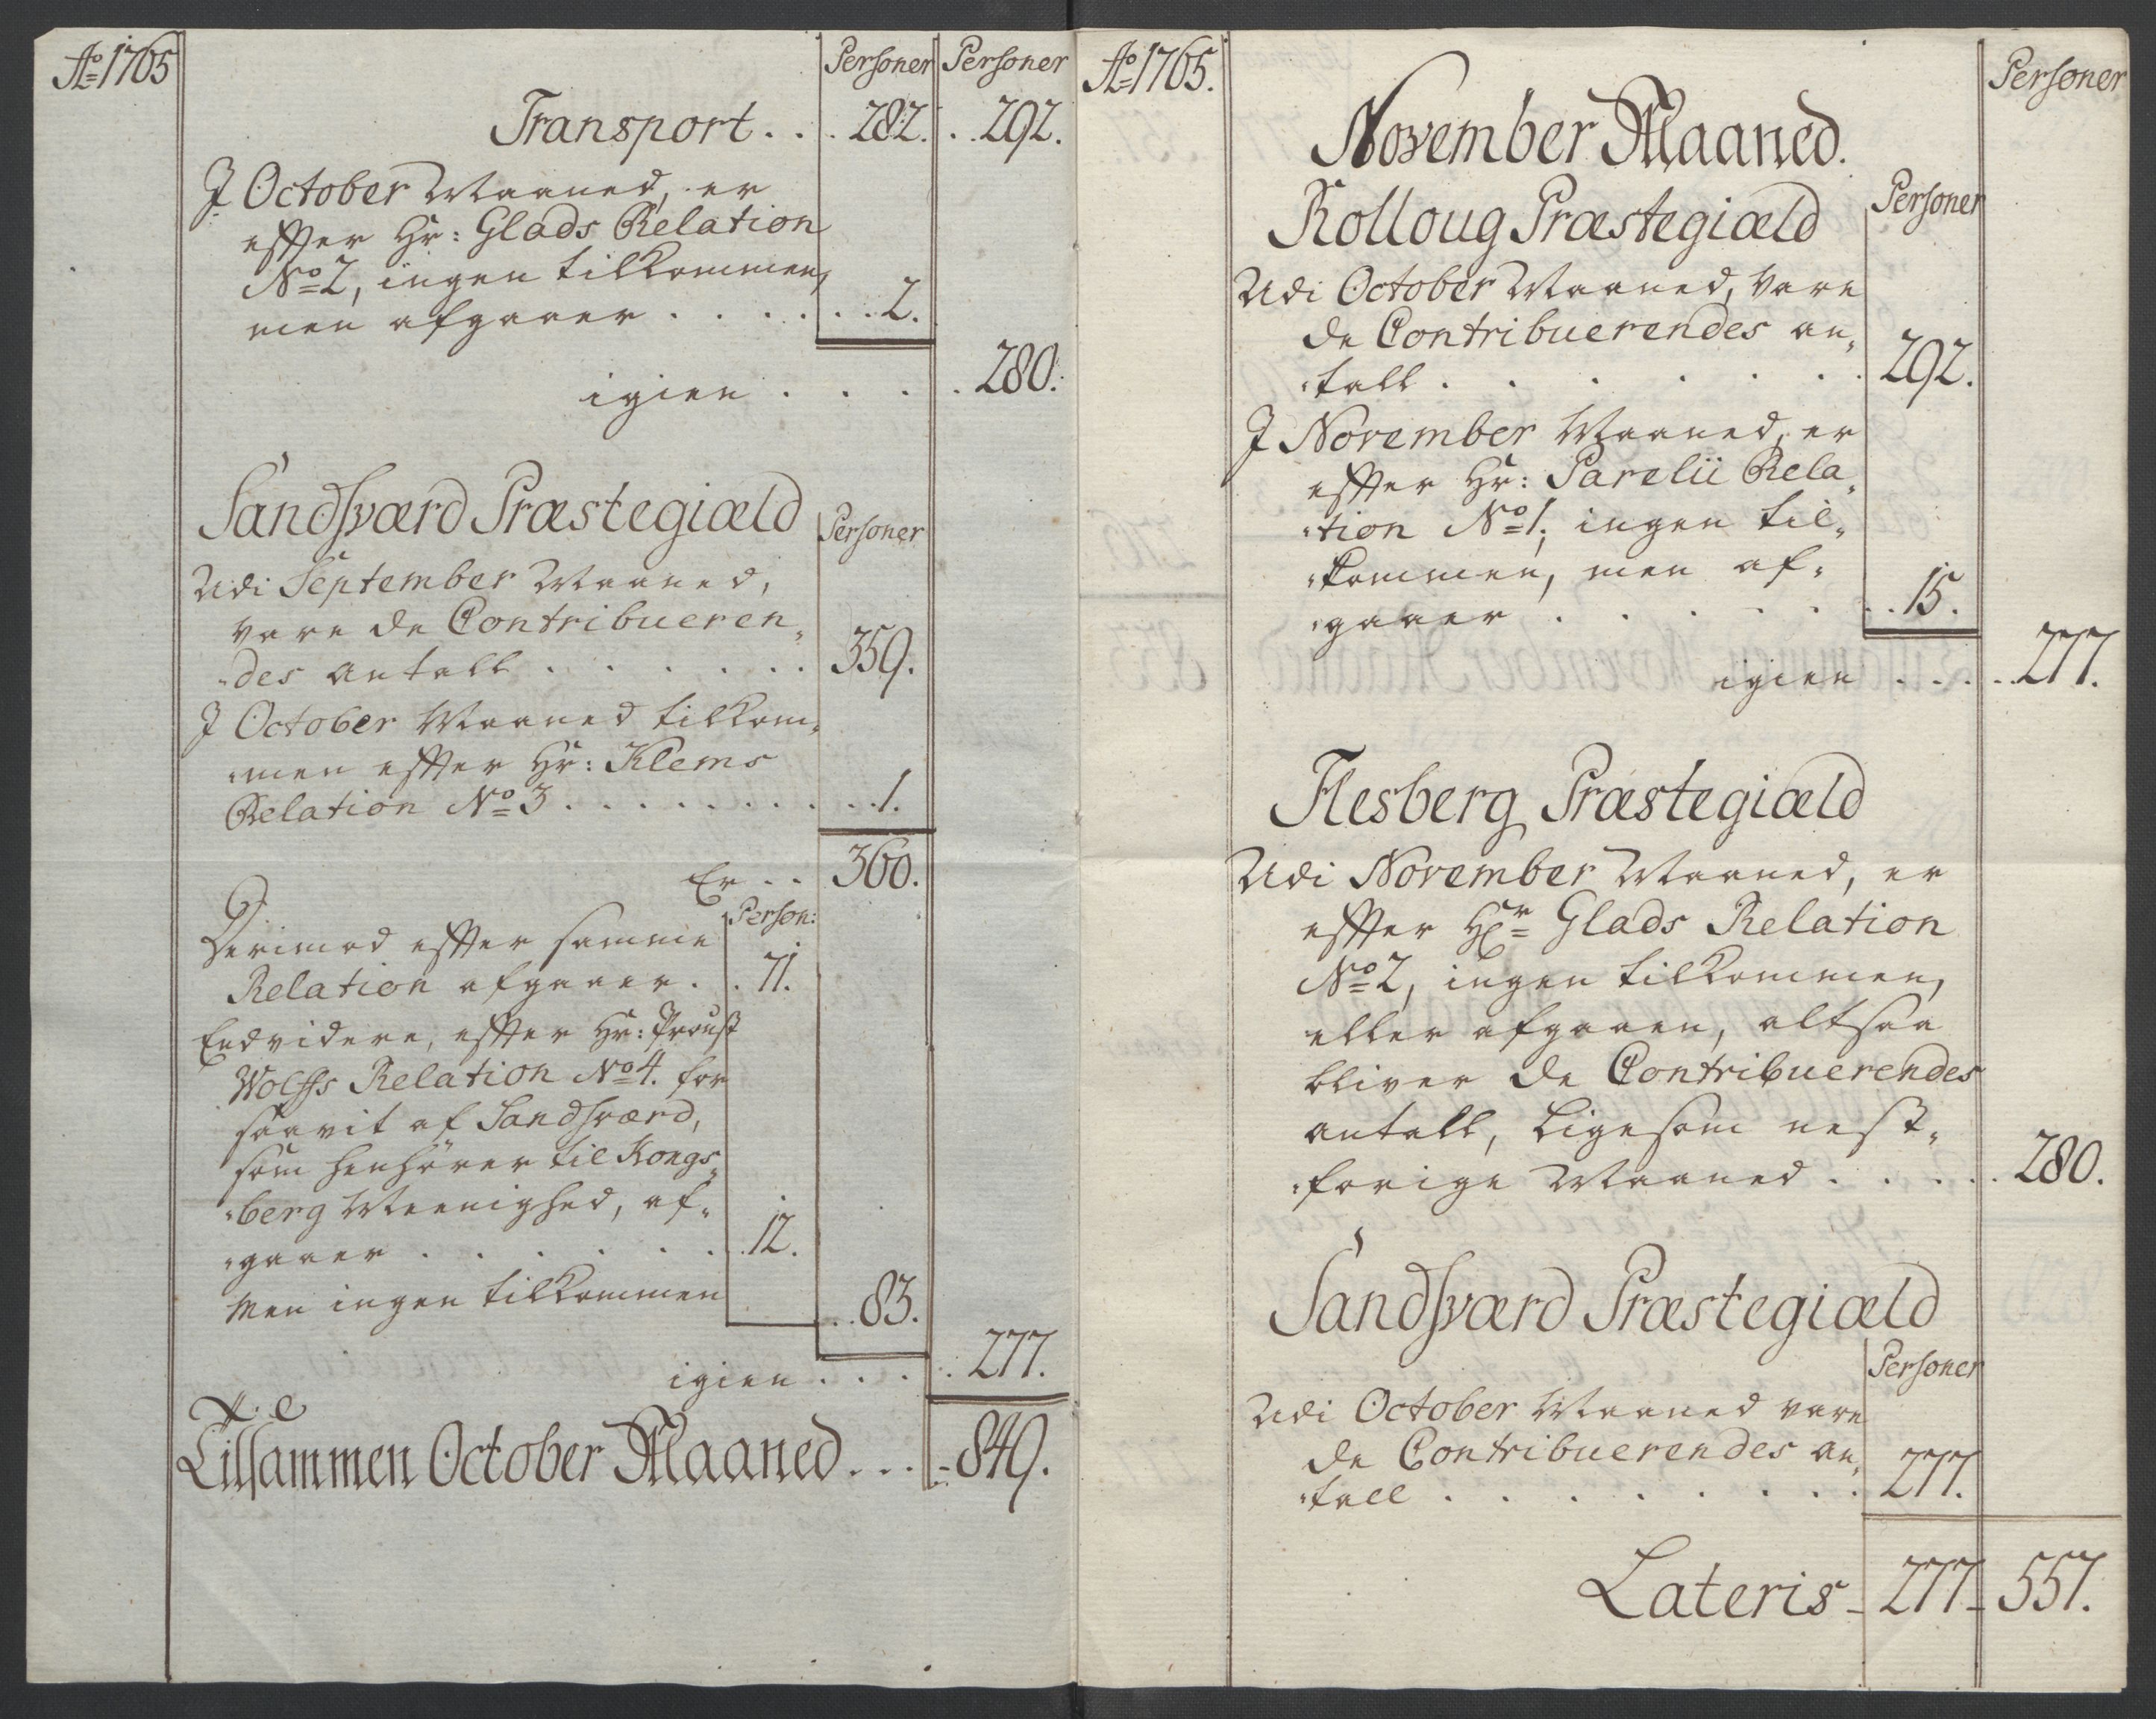 Ao 1765
Personer Personer
Transport . . . 282. . . 292.
J October Maaned, er
efter Hr: Glads Relation
No 2, ingen tilkommen,
men afgaaer . . . . . . . 2.
igien . . . . . 280.
Sandsværd Præstegiæld
Personer
Udi September Maaned,
vare de Contribueren„
„des antall . . . . . . 359.
J October Maaned tilkom„
„men efter Hr: Klems
Relation No 3 . . . . . . . . . . 1.
Er . . 360.
Person:
Derimod efter samme
Relation afgaaer . . 71.
Endvidere, efter Hr: Proust
Wolffs Relation No 4. for
saavit af Sandsværd,
som henhörer til Kongs„
„berg Meenighed, af„
„gaaer . . . . . . . 12.
Men ingen tilkommen
. . 83.
igien . . . . . 277.
Tilsammen October Maaned . . . - 849.
Ao 1765.
Personer
November Maaned.
Rolloug Præstegiæld
Personer
Udi October Maaned, vare
de Contribuerendes an„
„tall . . . . . . . 292.
J November Maaned, er
efter Hr: Parelii Rela„
„tion No 1, ingen til„
„kommen, men af„
„gaaer . . . . . . . 15.
igien . . . . . 277.
Flesberg Præstegiæld
Udi November Maaned, er
efter Hr Glads Relation
No 2, ingen tilkommen,
eller afgaaen, altsaa
bliver de Contribuerendes
antall, ligesom nest„
„forige Maaned . . . . . 280.
Sandsværd Præstegiæld
Personer
Udi October Maaned vare
de Contribuerendes an„
„tall . . . . . . . 277.
Lateris - 277 - 557.